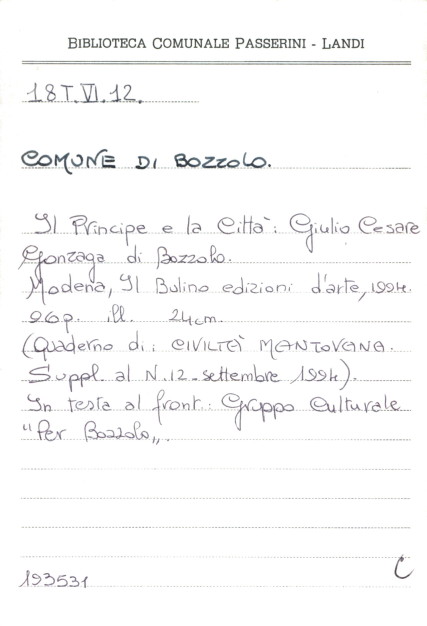 BIBLIOTECA COMUNALE PASSERINI - LANDI
18T.VI.12.
COMUNE DI BOZZOLO.
Il Principe e la Città: Giulio Cesare
Gonzaga di Bozzolo.
Modena, Il Bulino edizioni d'arte, 1994.
96p. ill. 24cm.
(Quaderno di: CIVILTÀ MANTOVANA.
Suppl. al N.12-settembre 1994).
In testa al front.: Gruppo Culturale
"Per Bozzolo„.
193531
C